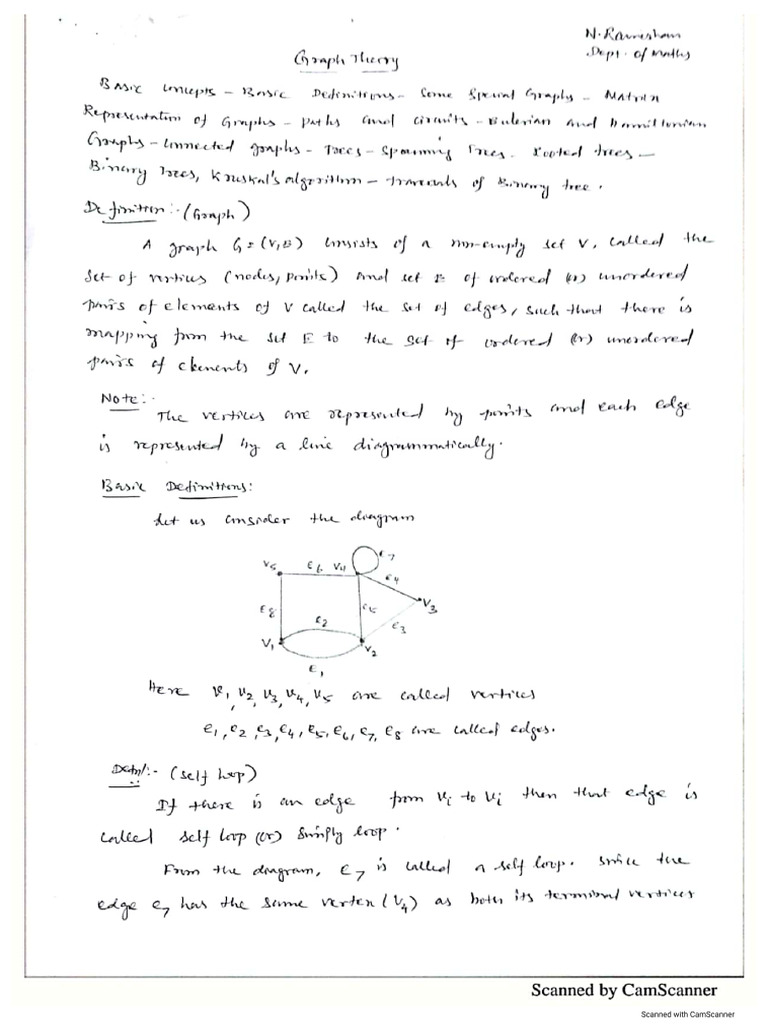 N. Ramesham
Dept. of Maths
Graph Theory
Basic Concepts - Basic Definitions - Some Special Graphs - Matrix
Representation of Graphs - Paths and circuits - Eulerian and Hamiltonian
Graphs - Connected graphs - Trees - Spanning Trees - Rooted trees -
Binary Trees, Kruskal's algorithm - traversals of Binary tree.
Definition:- (Graph)
A graph G = (V, E) consists of a non-empty set V, called the
set of vertices (nodes, points) and set E of ordered (or) unordered
pairs of elements of V called the set of edges, such that there is
mapping from the set E to the set of ordered (or) unordered
pairs of elements of V.
Note:-
The vertices are represented by points and each edge
is represented by a line diagrammatically.
Basic Definitions:
Let us consider the diagram
e7
V5 e6 V4 e4
e8 e5 V3
e2 e3
V1 V2
e1
Here v1, v2, v3, v4, v5 are called vertices
e1, e2, e3, e4, e5, e6, e7, e8 are called edges.
Defn:- (Self loop)
If there is an edge from vi to vi then that edge is
called self loop (or) simply loop.
From the diagram, e7 is called a self loop. Since the
edge e7 has the same vertex (V4) as both its terminal vertices
Scanned by CamScanner
Scanned with CamScanner